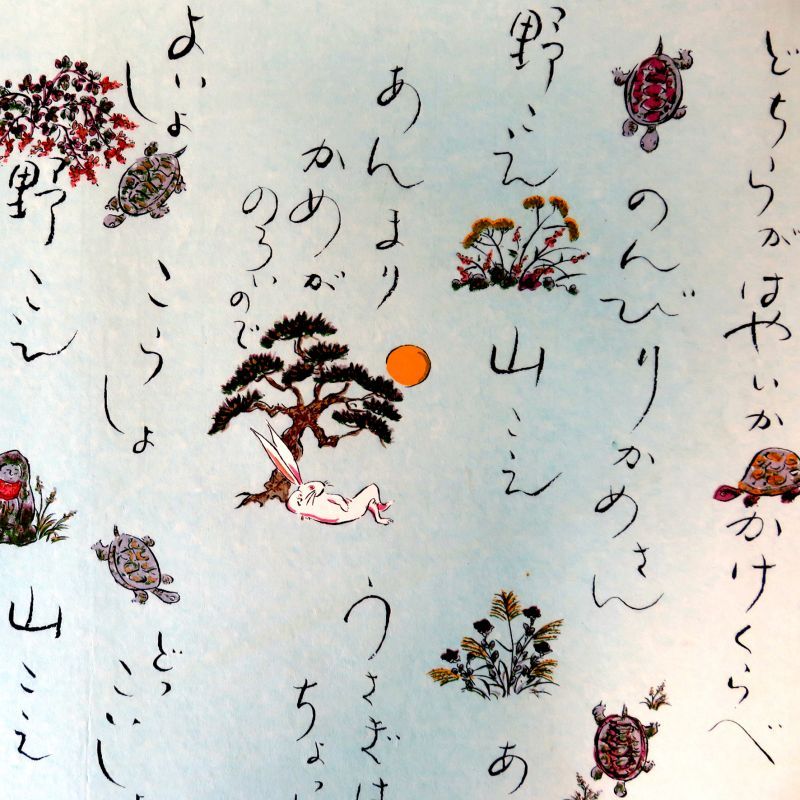 どちらがはやいか かけくらべ
のんびりかめさん
野こえ 山こえ あ
あんまり
かめが
のろいので
うさぎは
ちょっ
よいしょ
こらしょ
どっ
こいしょ
野こえ 山こえ